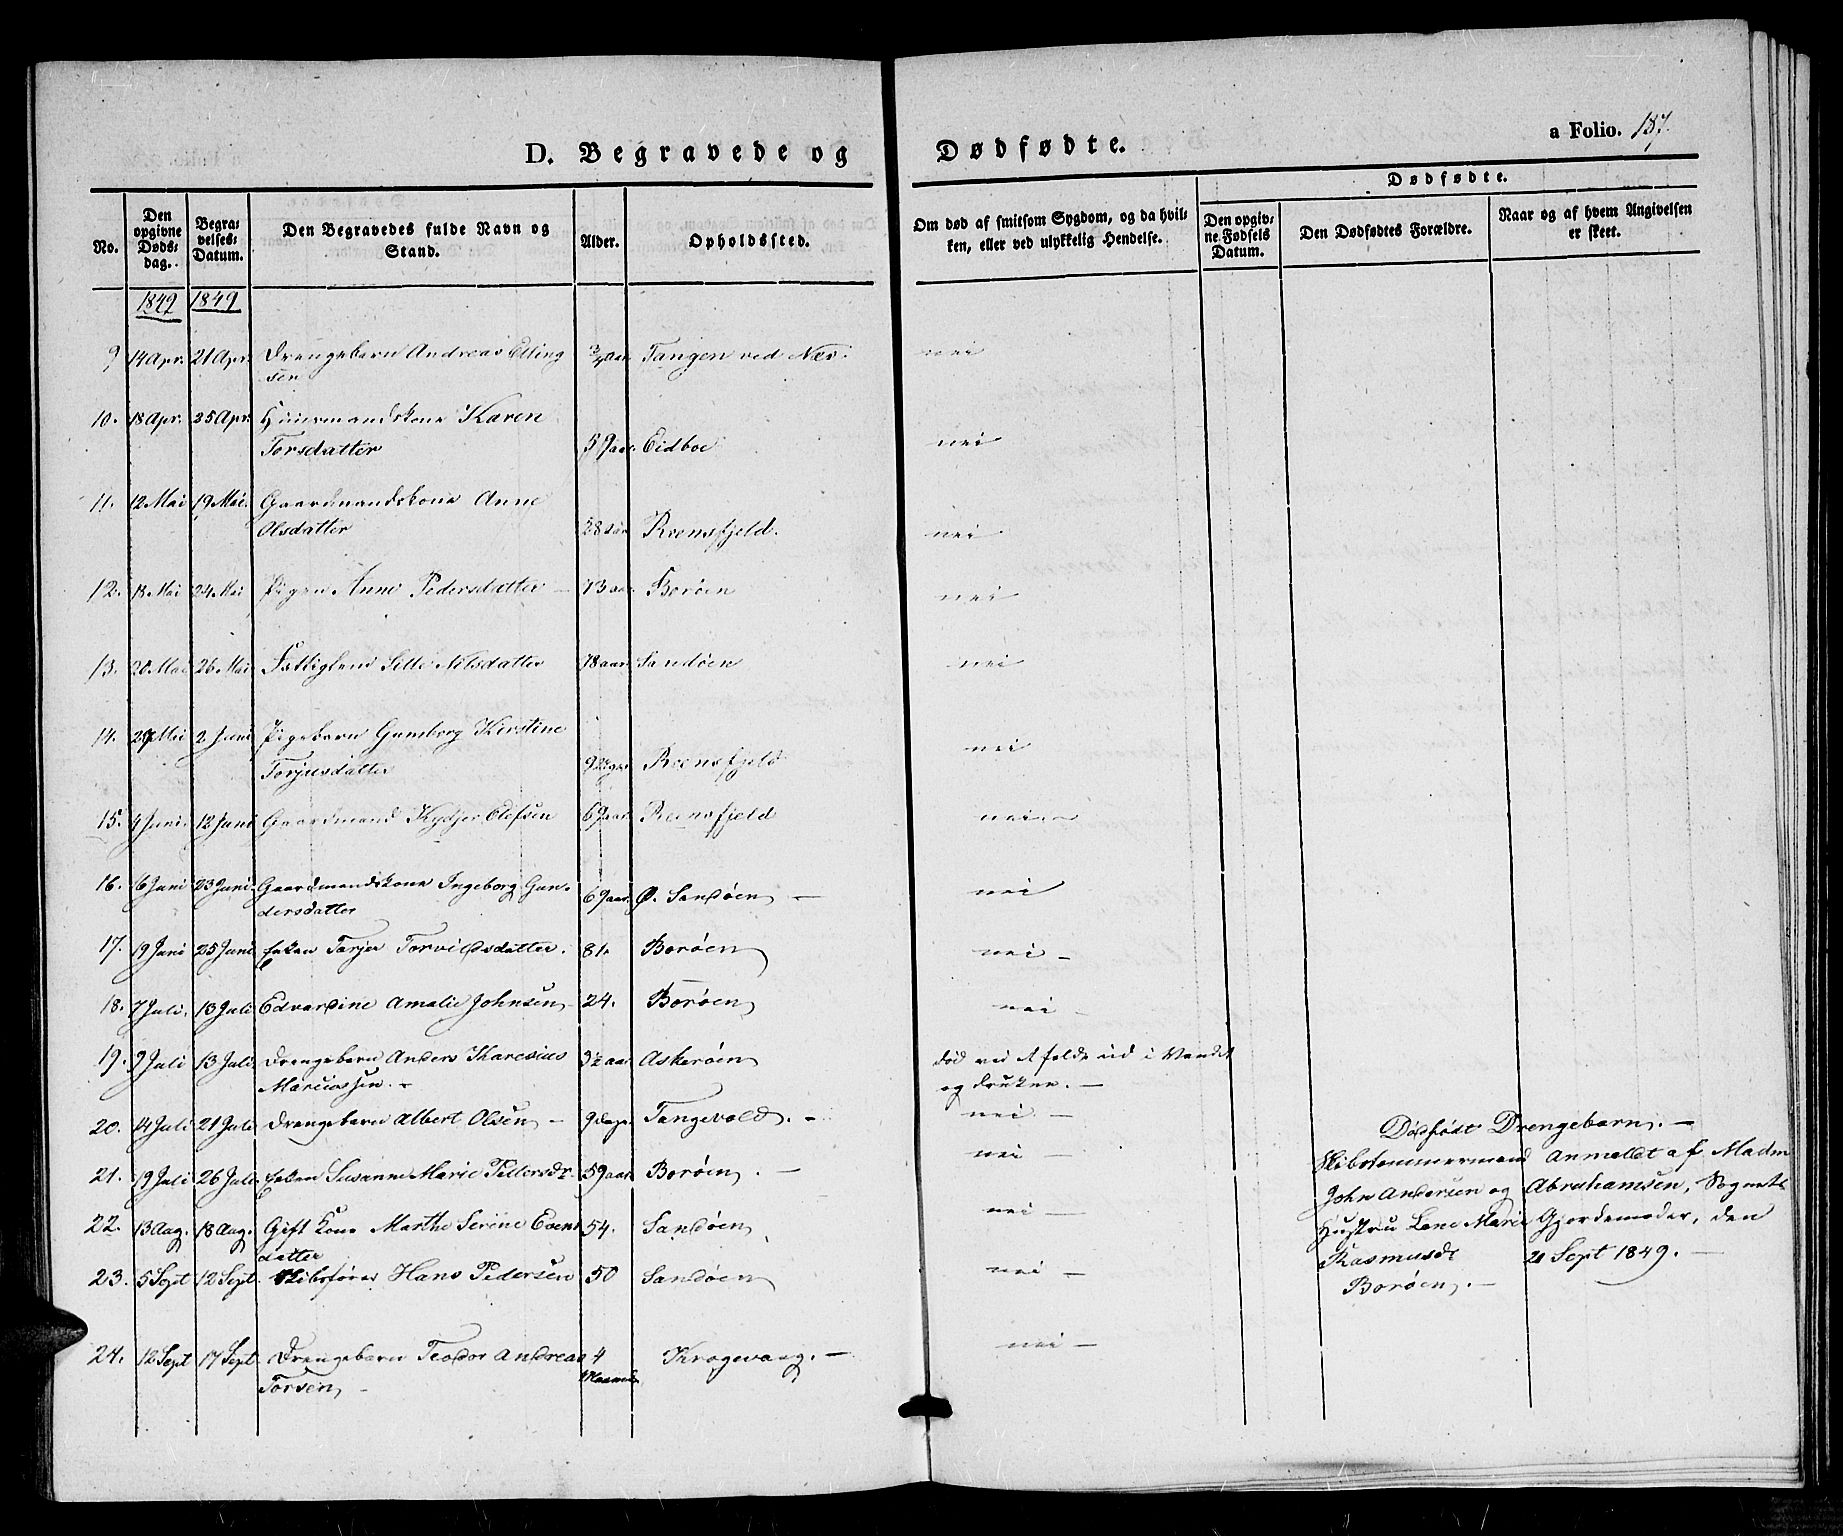 D. Begravede og Dødfødte.
a Folio. 187.
No.
Den opgivne Døds-dag.
Begra-velses-Datum.
Den Begravedes fulde Navn og Stand.
Alder.
Opholdssted.
Om død af smitsom Sygdom, og da hvil-
ken, eller ved ulykkelig Hendelse.
Dødfødte.
Den opgiv-ne Fødsels Datum.
Den Dødfødtes Forældre.
Naar og af hvem Angivelsen er skeet.
1849 1849
9 14 Apr. 21 Apr. Drengebarn Andreas Elling
sen 3/4 aar Tangen ved Næs: nei
10. 18 Apr. 25 Apr. Huusmandskone Karen
Torsdatter 59 aar. Eidboe nei
11. 12 Mai 19 Mai. Gaardmandskone Anne
Olsdatter 28 aar Reensfjeld. nei
12. 18 Mai 24 Mai Pigen Anne Pedersdatter — 73 aar Borøen nei
13. 20 Mai 26 Mai Fattiglem Nilsdatter 78 aar Sandøen nei
14. 29 Mai 2 Juni Pigebarn Gunborg Kirstine
Torjusdatter 9 Reensfjeld nei
15. 4 Juni. 12 Juni Gaardmand Olefsen 69 aar Reensfjeld nei
16. 16 Juni 23 Juni. Gaardmandskone Ingeborg Gun-
dersdatter 69 aar. Ø. Sandøen — nei
17. 19 Juni 25 Juni Enken Torjer Torvildsdatter. 81. Borøen nei —
18. 7 Juli. 13 Juli Edvardine Amalie Johnsen 24. Borøen nei —
19. 9 Juli 13 Juli. Drengebarn Anders
Marcussen. — 3½ aar Askerøen død ved at falde ud i Vandet
og drukne. —
20. 14 Juli 21 Juli Drengebarn Albert Olsen — 9 Dage. Tangevold. — nei —
21. 19 Juli 26 Juli Enken Susanne Marie Pedersdr. 59 aar Borøen. — nei —
22. 13 Aug. 18 Aug. Gift Kone Marthe Serine Evens
datter 54. Sandøen nei —
23. 5 Sept 12 Sept. Skibsfører Hans Pedersen 50 Sandøen nei —
24. 12 Sept 17 Sept Drengebarn Teodor Andreas
Torsen — 4 Maaneder Krogevaag. — nei —
Dødfødt Drengebarn. —
Skibstømmermand
John Andersen og
Hustru Lene Marie
Rasmusdr
Borøen. —
Anmeldt af Madm
Abrahamsen, Sognets
Gjordemoder, den
21 Sept 1849. —